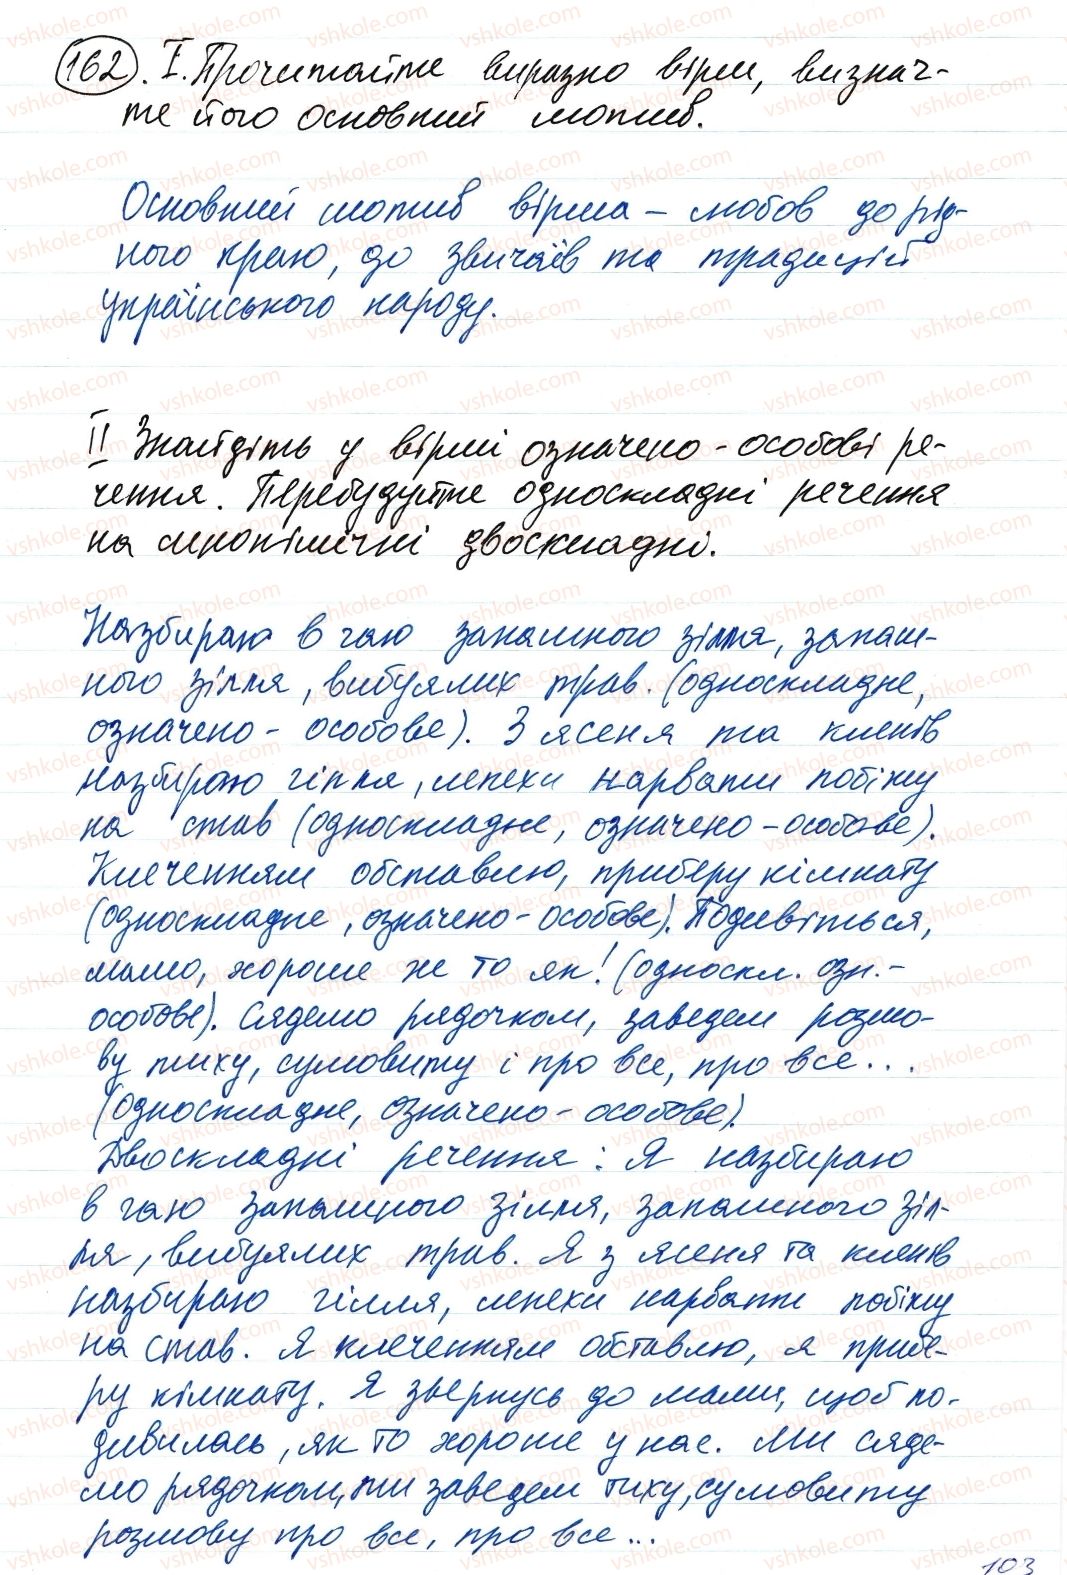 162. I. Прочитайте виразно вірш, визнач-
те його основний мотив.
Основний мотив вірша - любов до рід-
ного краю, до звичаїв та традицій
українського народу.
II Знайдіть у вірші означено-особові ре-
чення. Перебудуйте односкладні речення
на синонімічні двоскладні.
Назбираю в гаю запашного зілля, запаш-
ного зілля, вибуялих трав. (односкладне,
означено-особове). З ясеня та кленів
назбираю гілля, лепехи нарвати побіжу
на став (односкладне, означено-особове).
Клеченням обставлю, приберу кімнату
(односкладне, означено-особове). Подивіться,
мамо, хороше же то як! (односкл. озн.-
особове). Сядемо рядочком, заведем розмо-
ву тиху, сумовиту і про все, про все...
(односкладне, означено-особове).
Двоскладні речення: Я назбираю
в гаю запашного зілля, запашного зіл-
ля, вибуялих трав. Я з ясеня та кленів
назбираю гілля, лепехи нарвати побіжу
на став. Я клеченням обставлю, я прибе-
ру кімнату. Я звернусь до мами, щоб по-
дивилась, як то хороше у нас. Ми сяде-
мо рядочком, ми заведем тиху, сумовиту
розмову про все, про все...
103